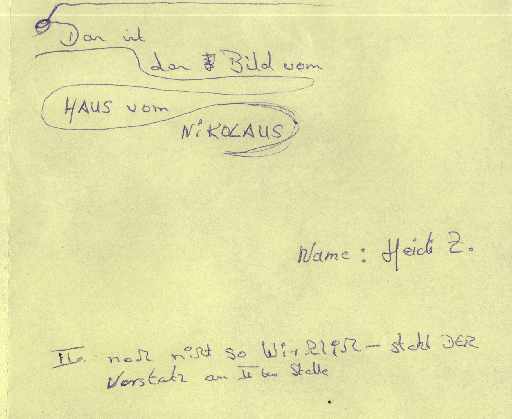 Das ist
das Bild vom
HAUS vom
NiKOLAUS
Name: Heidi Z.
II. noch nicht so Wirklich – steht DER
Vorsatz an II ter Stelle